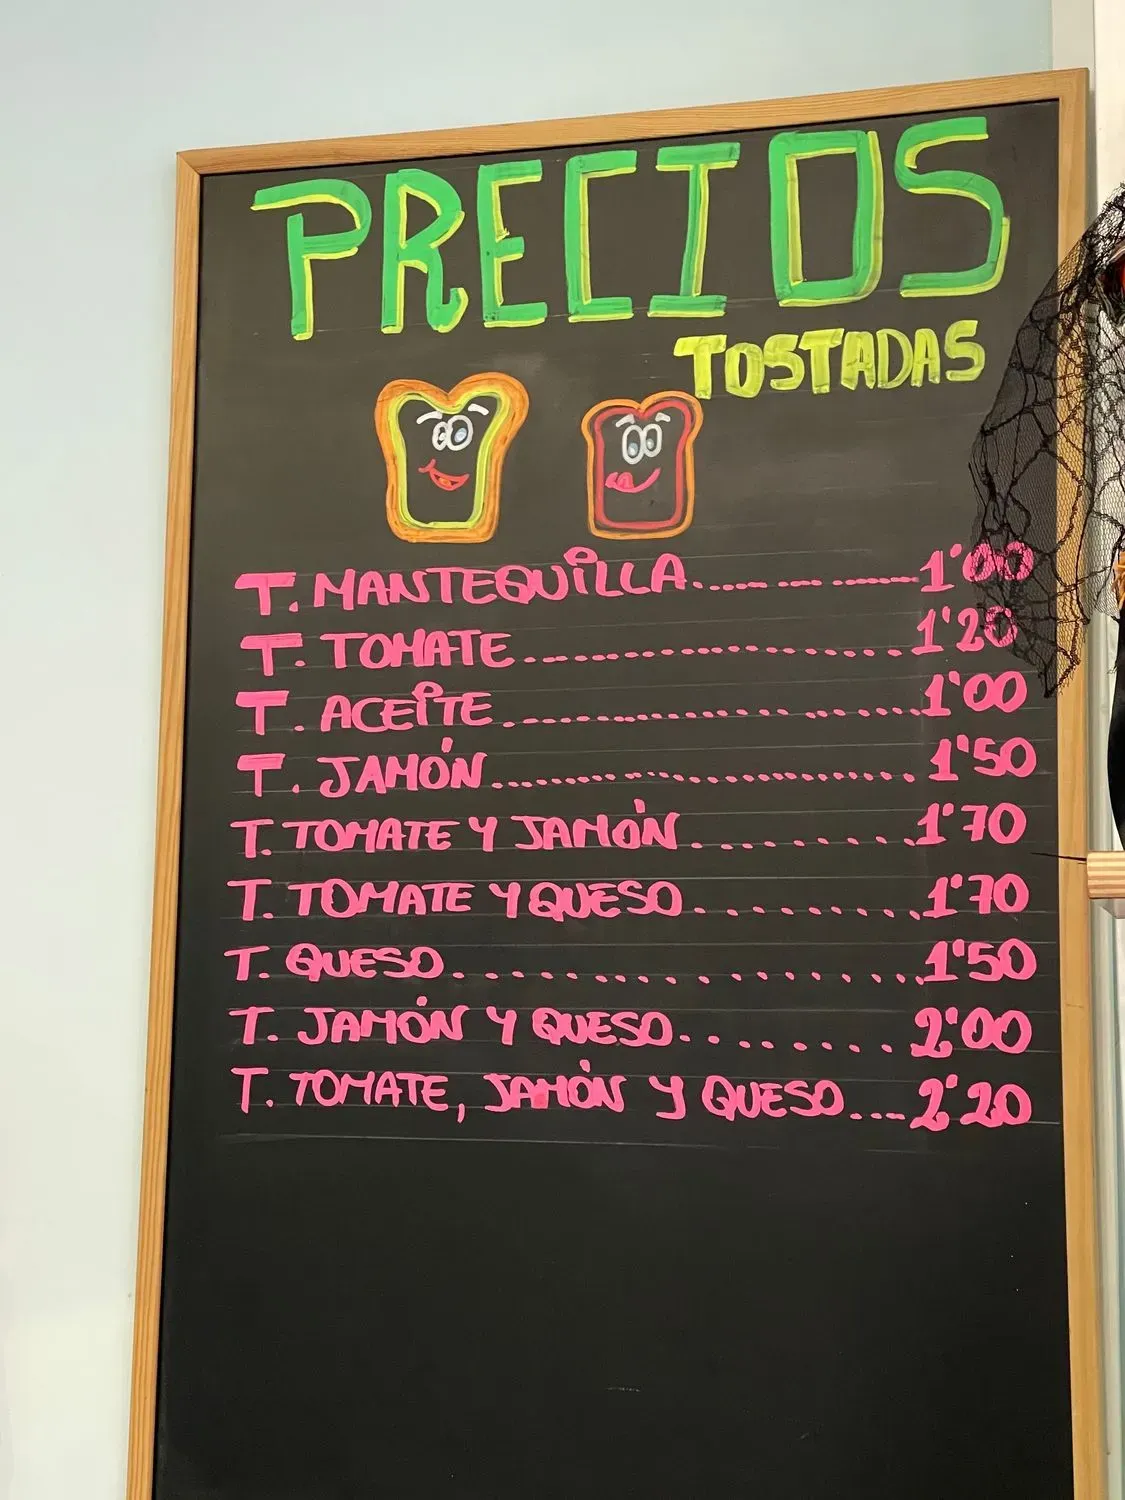 PRECIOS
TOSTADAS
T. MANTEQUILLA................1'00
T. TOMATE..............................1'20
T. ACEITE..............................1'00
T. JAMÓN..............................1'50
T. TOMATE Y JAMÓN.........1'70
T. TOMATE Y QUESO..........1'70
T. QUESO................1'50
T. JAMÓN Y QUESO........2'00
T. TOMATE, JAMÓN Y QUESO...2'20